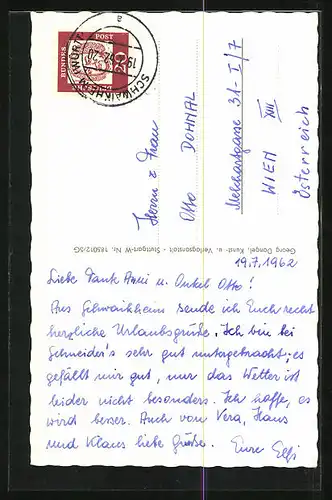 BUNDES POST
20
SCHWAIKHEIM
a
Herrn u Frau
Otto DOHNAL
Melchartgasse 31-I/7
WIEN XIII
Österreich
Georg Dongel, Kunst- u. Verlagsanstalt - Stuttgart-W Nr. 1850/12/5G
19.7.1962
Liebe Tante Anni u. Onkel Otto!
Aus Schwaikheim sende ich Euch recht
herzliche Urlaubsgrüße. Ich bin bei
Schneider's sehr gut untergebracht; es
gefällt mir gut, nur das Wetter ist
leider nicht besonders. Ich hoffe, es
wird besser. Auch von Vera, Hans
und Klaus liebe Grüße. Eure Elfi